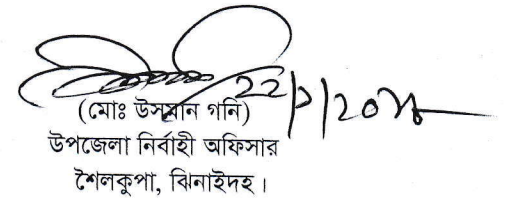 (মোঃ উসমান গনি)
উপজেলা নির্বাহী অফিসার
শৈলকুপা, ঝিনাইদহ।